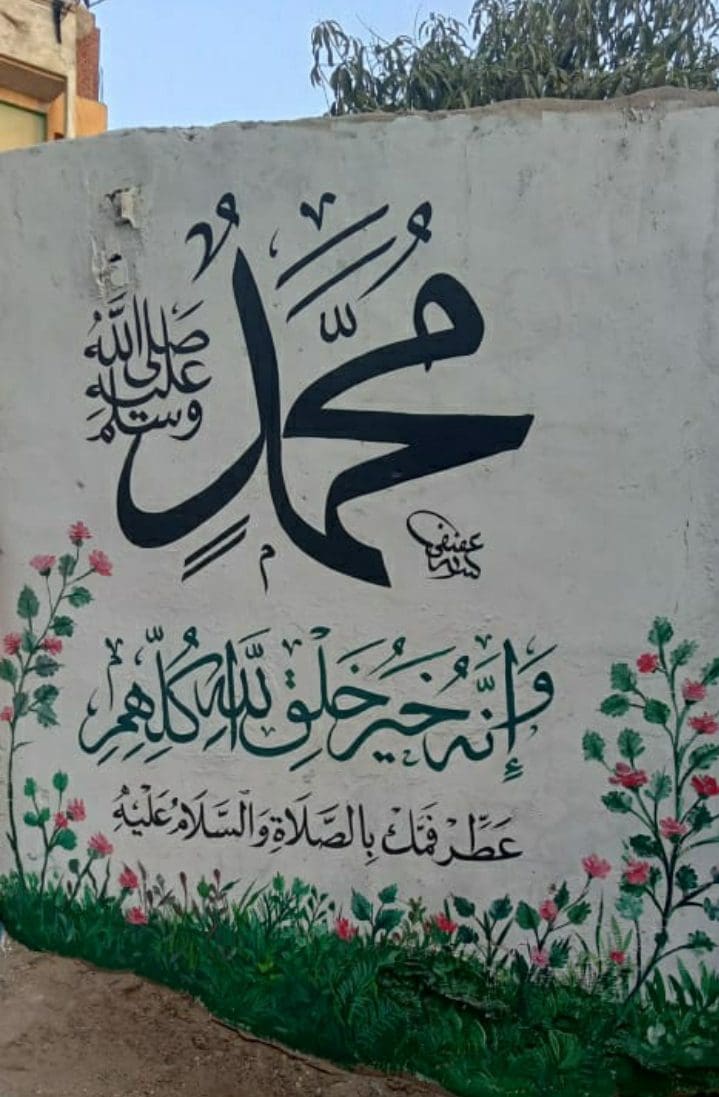 مُحَمَّدٌ
صَلَى اللَّهُ
عَلَيْهِ
وَسَلَّمَ
وَإِنَّهُ خَيْرُ خَلْقِ اللَّهِ كُلِّهِمِ
عَطِّرْ فَمَّكْ بِالصَّلَاةِ وَالسَّلَامُ عَلَيْهِ